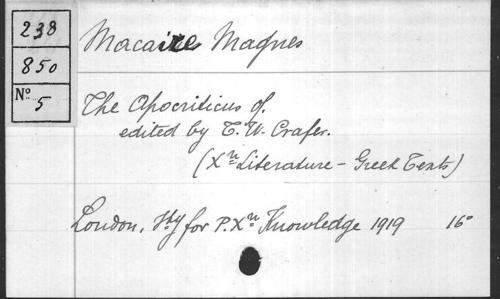 238
850
Nº 5
Macaire Magnes
The Apocriticus of.
edited by T. W. Crafer.
(Xⁿ Literature - Greek Texts)
London, Sty for P. Xⁿ Knowledge 1919 16º